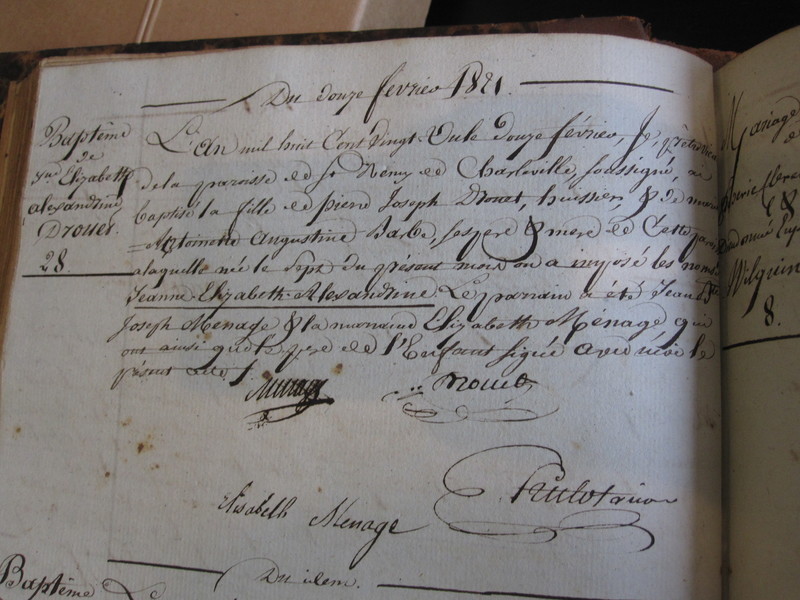 Du douze fevrier 1821.
Baptême
de
Elizabeth
alexandrine
Drouet.
28.
L'An mil huit Cent Vingt-Un le douze février, Je, prêtre
de la paroisse de St Remy de Charleville, soussigné, ai
baptisé la fille de pierre Joseph Drouet, huissier, & de marie
=Antoinette Augustine Barbe, ses pere & mere de Cette paroisse
a laquelle née le Sept du présent mois on a imposé les noms
Jeanne-Elizabeth-Alexandrine. Le parrain a été Jean Bte
Joseph Ménage & la marraine Elizabeth Ménage qui
ont ainsi que le pere de l'Enfant signé avec moi le
présent acte.
Menage
Drouet
Elisabeth Menage
Du idem.
Baptême
Mariage
de
&
Wilquin
8.